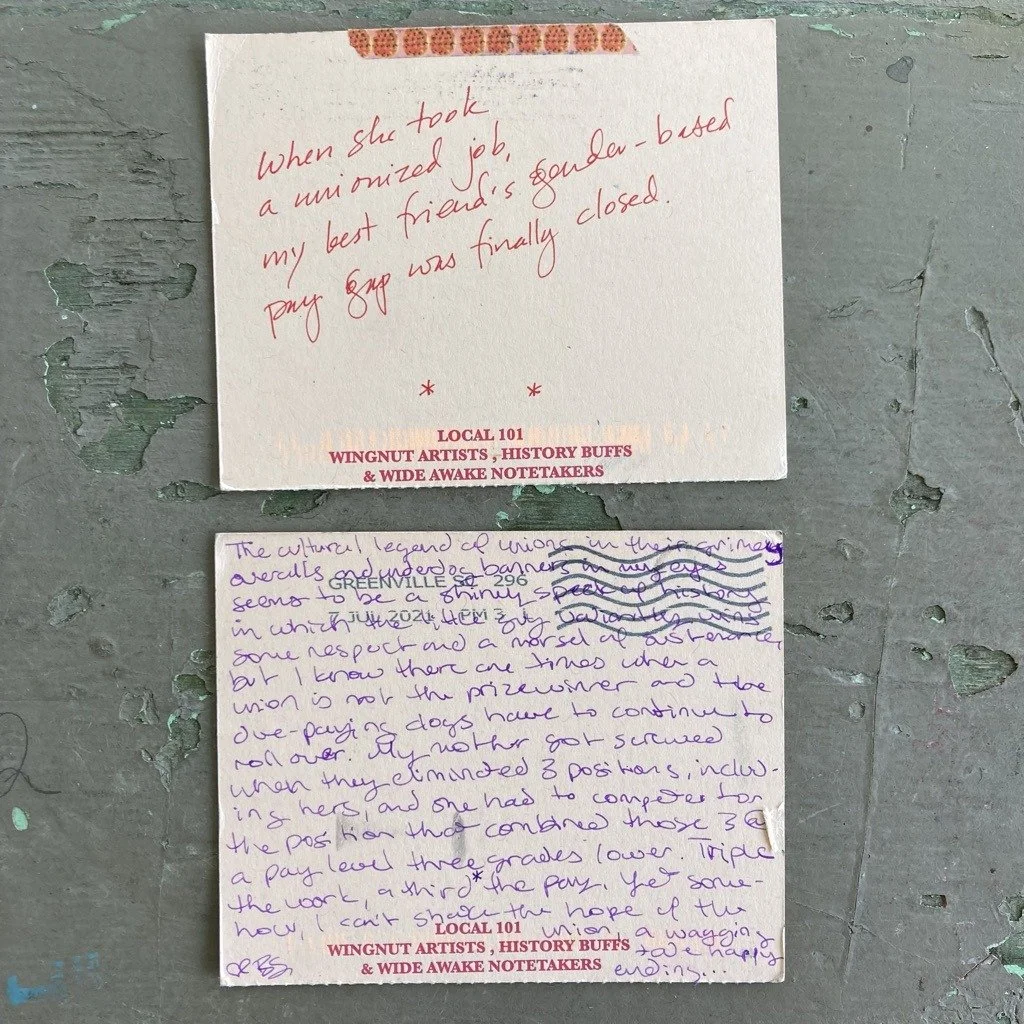 When she took
a unionized job,
my best friend's gender-based
pay gap was finally closed.
* *
LOCAL 101
WINGNUT ARTISTS , HISTORY BUFFS
& WIDE AWAKE NOTETAKERS
The cultural legend of unions in their grimey
overalls and underdog banners in my eyes
GREENVILLE SC 296
seems to be a shiny speck of history
7 JUL 2021 PM 3
in which the little guy valiantly wins
some respect and a morsel of sustenance,
but I know there are times when a
union is not the prizewinner and the
due-paying dogs have to continue to
roll over. My mother got screwed
when they eliminated 3 positions, includ-
ing hers, and she had to compete for
the position that combined those 3 @
a pay level three grades lower. Triple
the work, a third* the pay. Yet some-
how, I can't shake the hope of the
union, a wagging
LOCAL 101
WINGNUT ARTISTS , HISTORY BUFFS
& WIDE AWAKE NOTETAKERS
happy
ending...